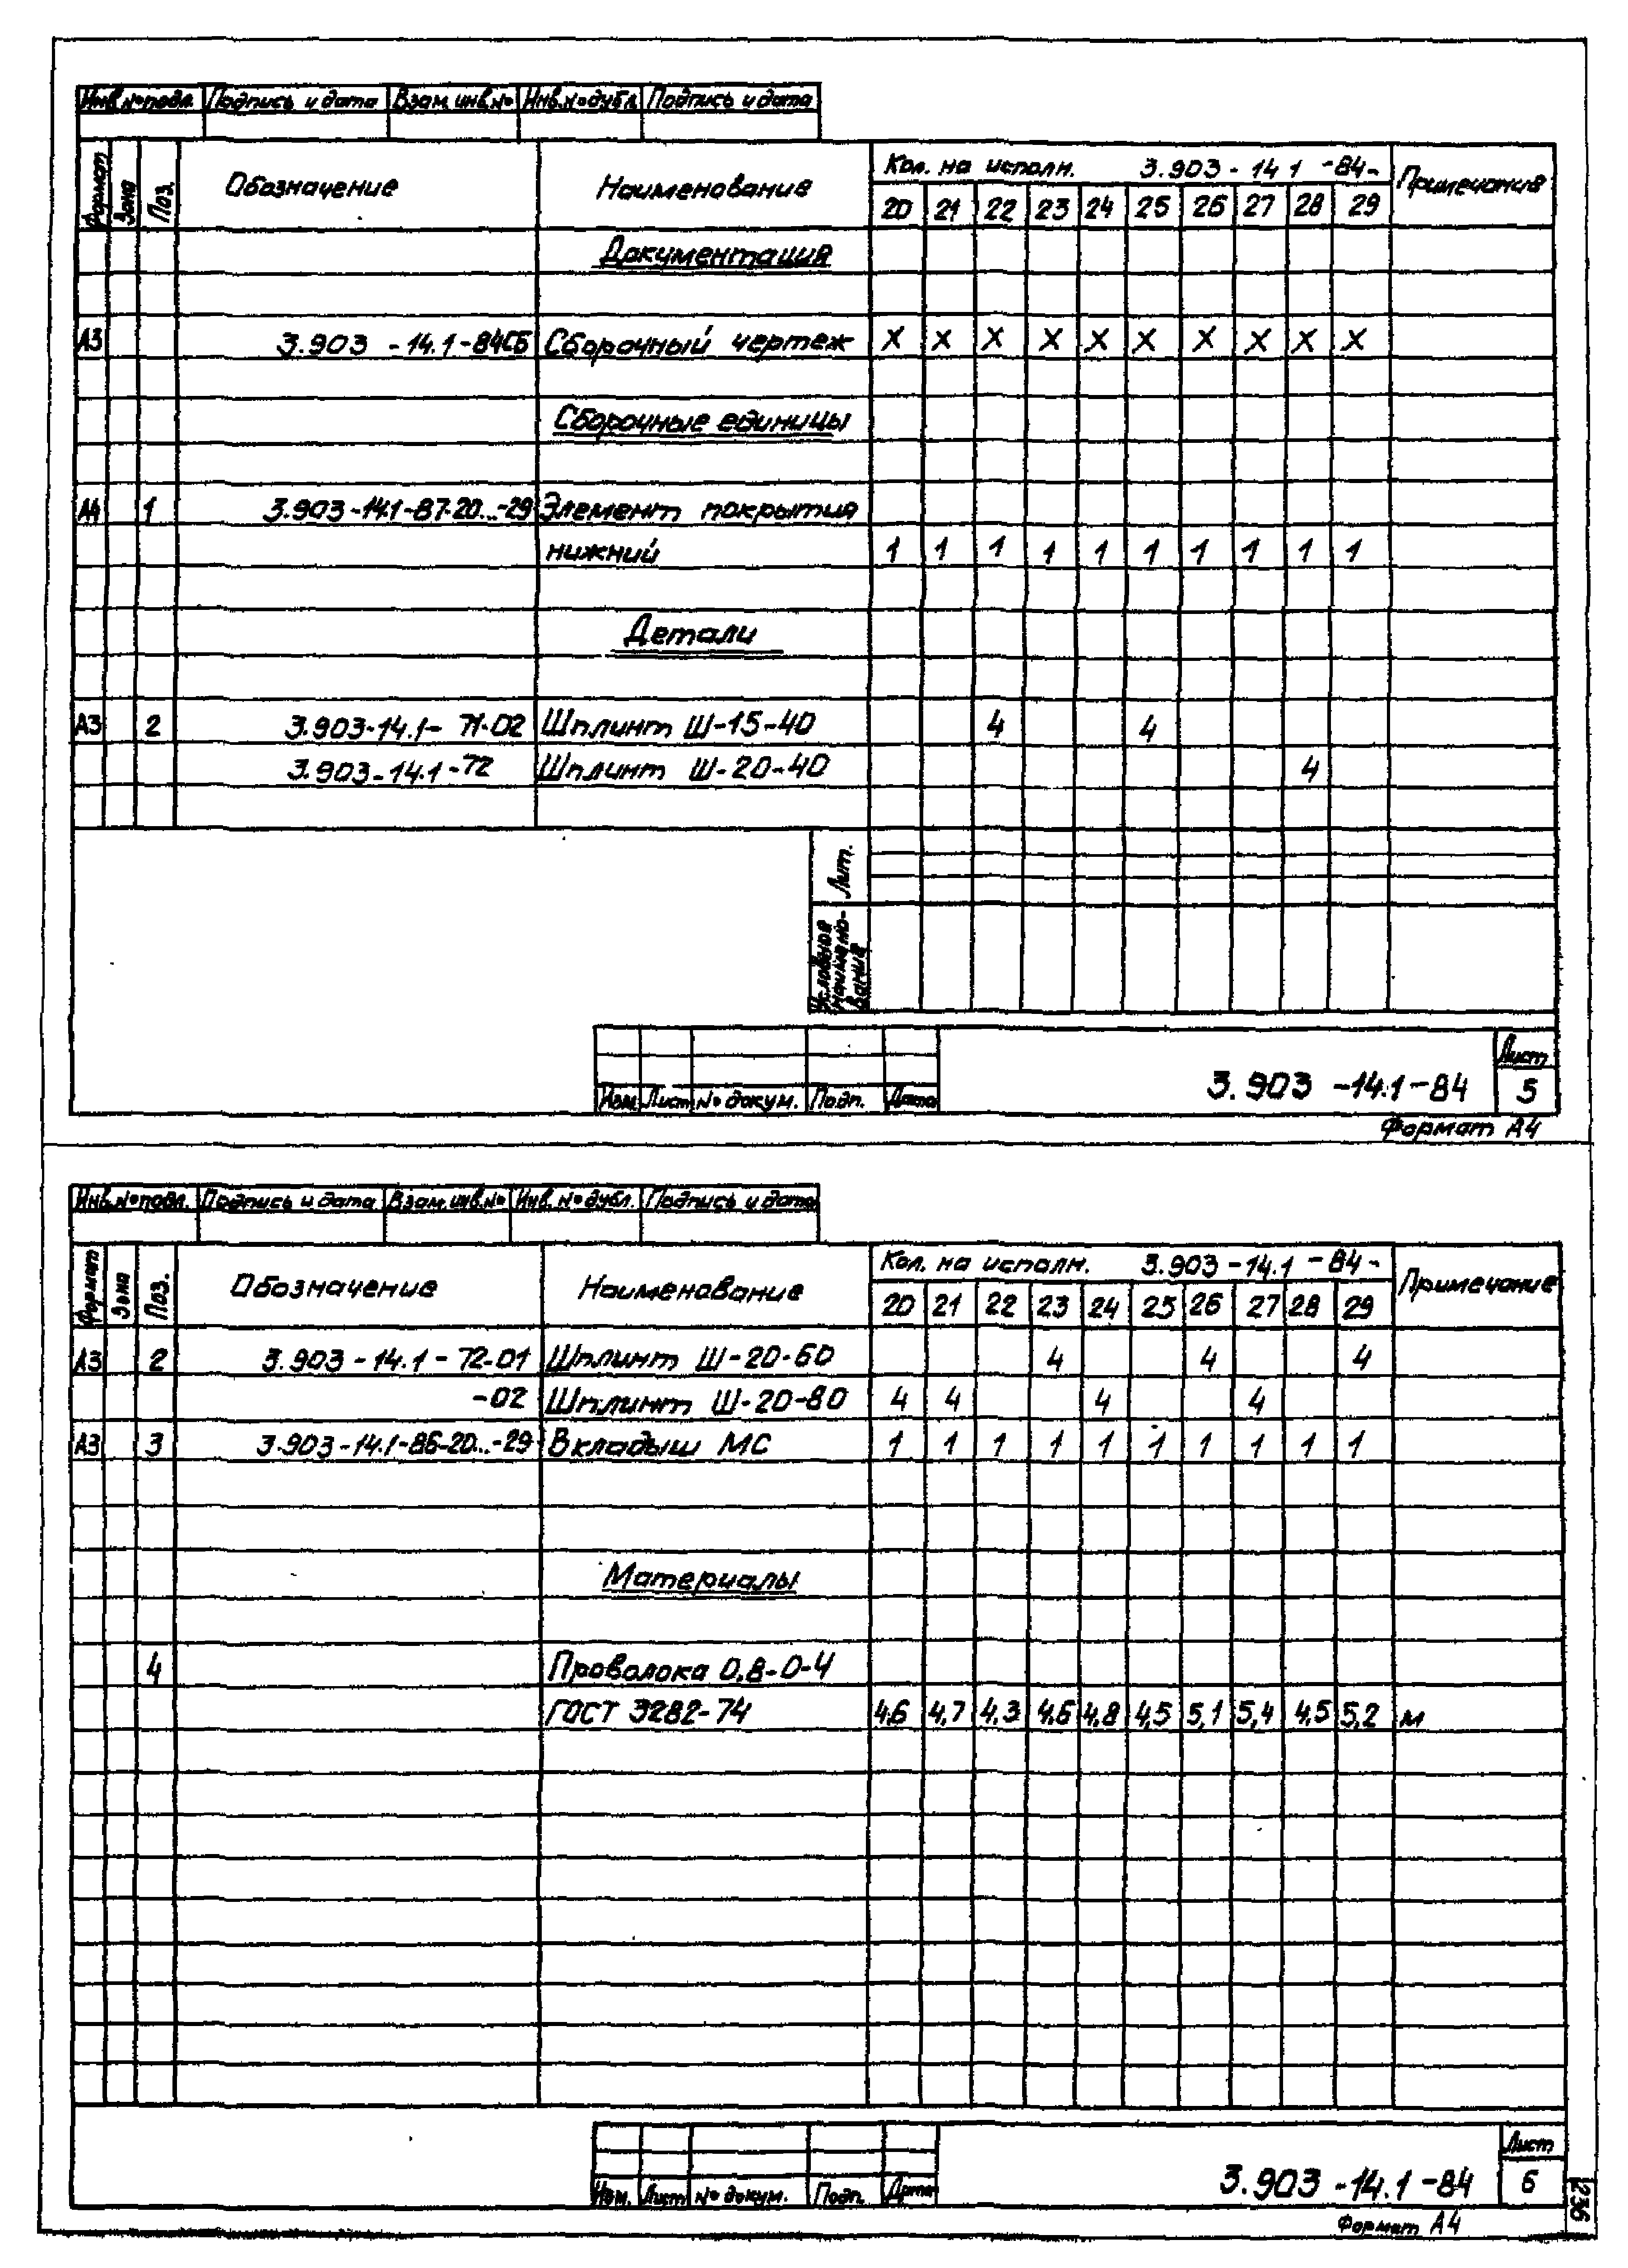 Инв.№ подл. Подпись и дата Взам. инв.№ Инв.№ дубл. Подпись и дата
Формат Зона Поз. Обозначение Наименование Кол. на исполн. 3.903-14.1-84- Примечание
20 21 22 23 24 25 26 27 28 29
Документация
А3 3.903-14.1-84СБ Сборочный чертеж X X X X X X X X X X
Сборочные единицы
А4 1 3.903-14.1-87-20...-29 Элемент покрытия
нижний 1 1 1 1 1 1 1 1 1 1
Детали
А3 2 3.903-14.1-71-02 Шплинт Ш-15-40 4 4
3.903-14.1-72 Шплинт Ш-20-40 4
Лит.
Условное наимено-вание
Изм. Лист № докум. Подп. Дата
3.903-14.1-84
Лист
5
Формат А4
Инв.№ подл. Подпись и дата Взам. инв.№ Инв.№ дубл. Подпись и дата
Формат Зона Поз. Обозначение Наименование Кол. на исполн. 3.903-14.1-84- Примечание
20 21 22 23 24 25 26 27 28 29
А3 2 3.903-14.1-72-01 Шплинт Ш-20-60 4 4 4
-02 Шплинт Ш-20-80 4 4 4 4
А3 3 3.903-14.1-86-20...-29 Вкладыш МС 1 1 1 1 1 1 1 1 1 1
Материалы
4 Проволока 0,8-0-4
ГОСТ 3282-74 4,6 4,7 4,3 4,6 4,8 4,5 5,1 5,4 4,5 5,2 м
Изм. Лист № докум. Подп. Дата
3.903-14.1-84
Лист
6
Формат А4
236